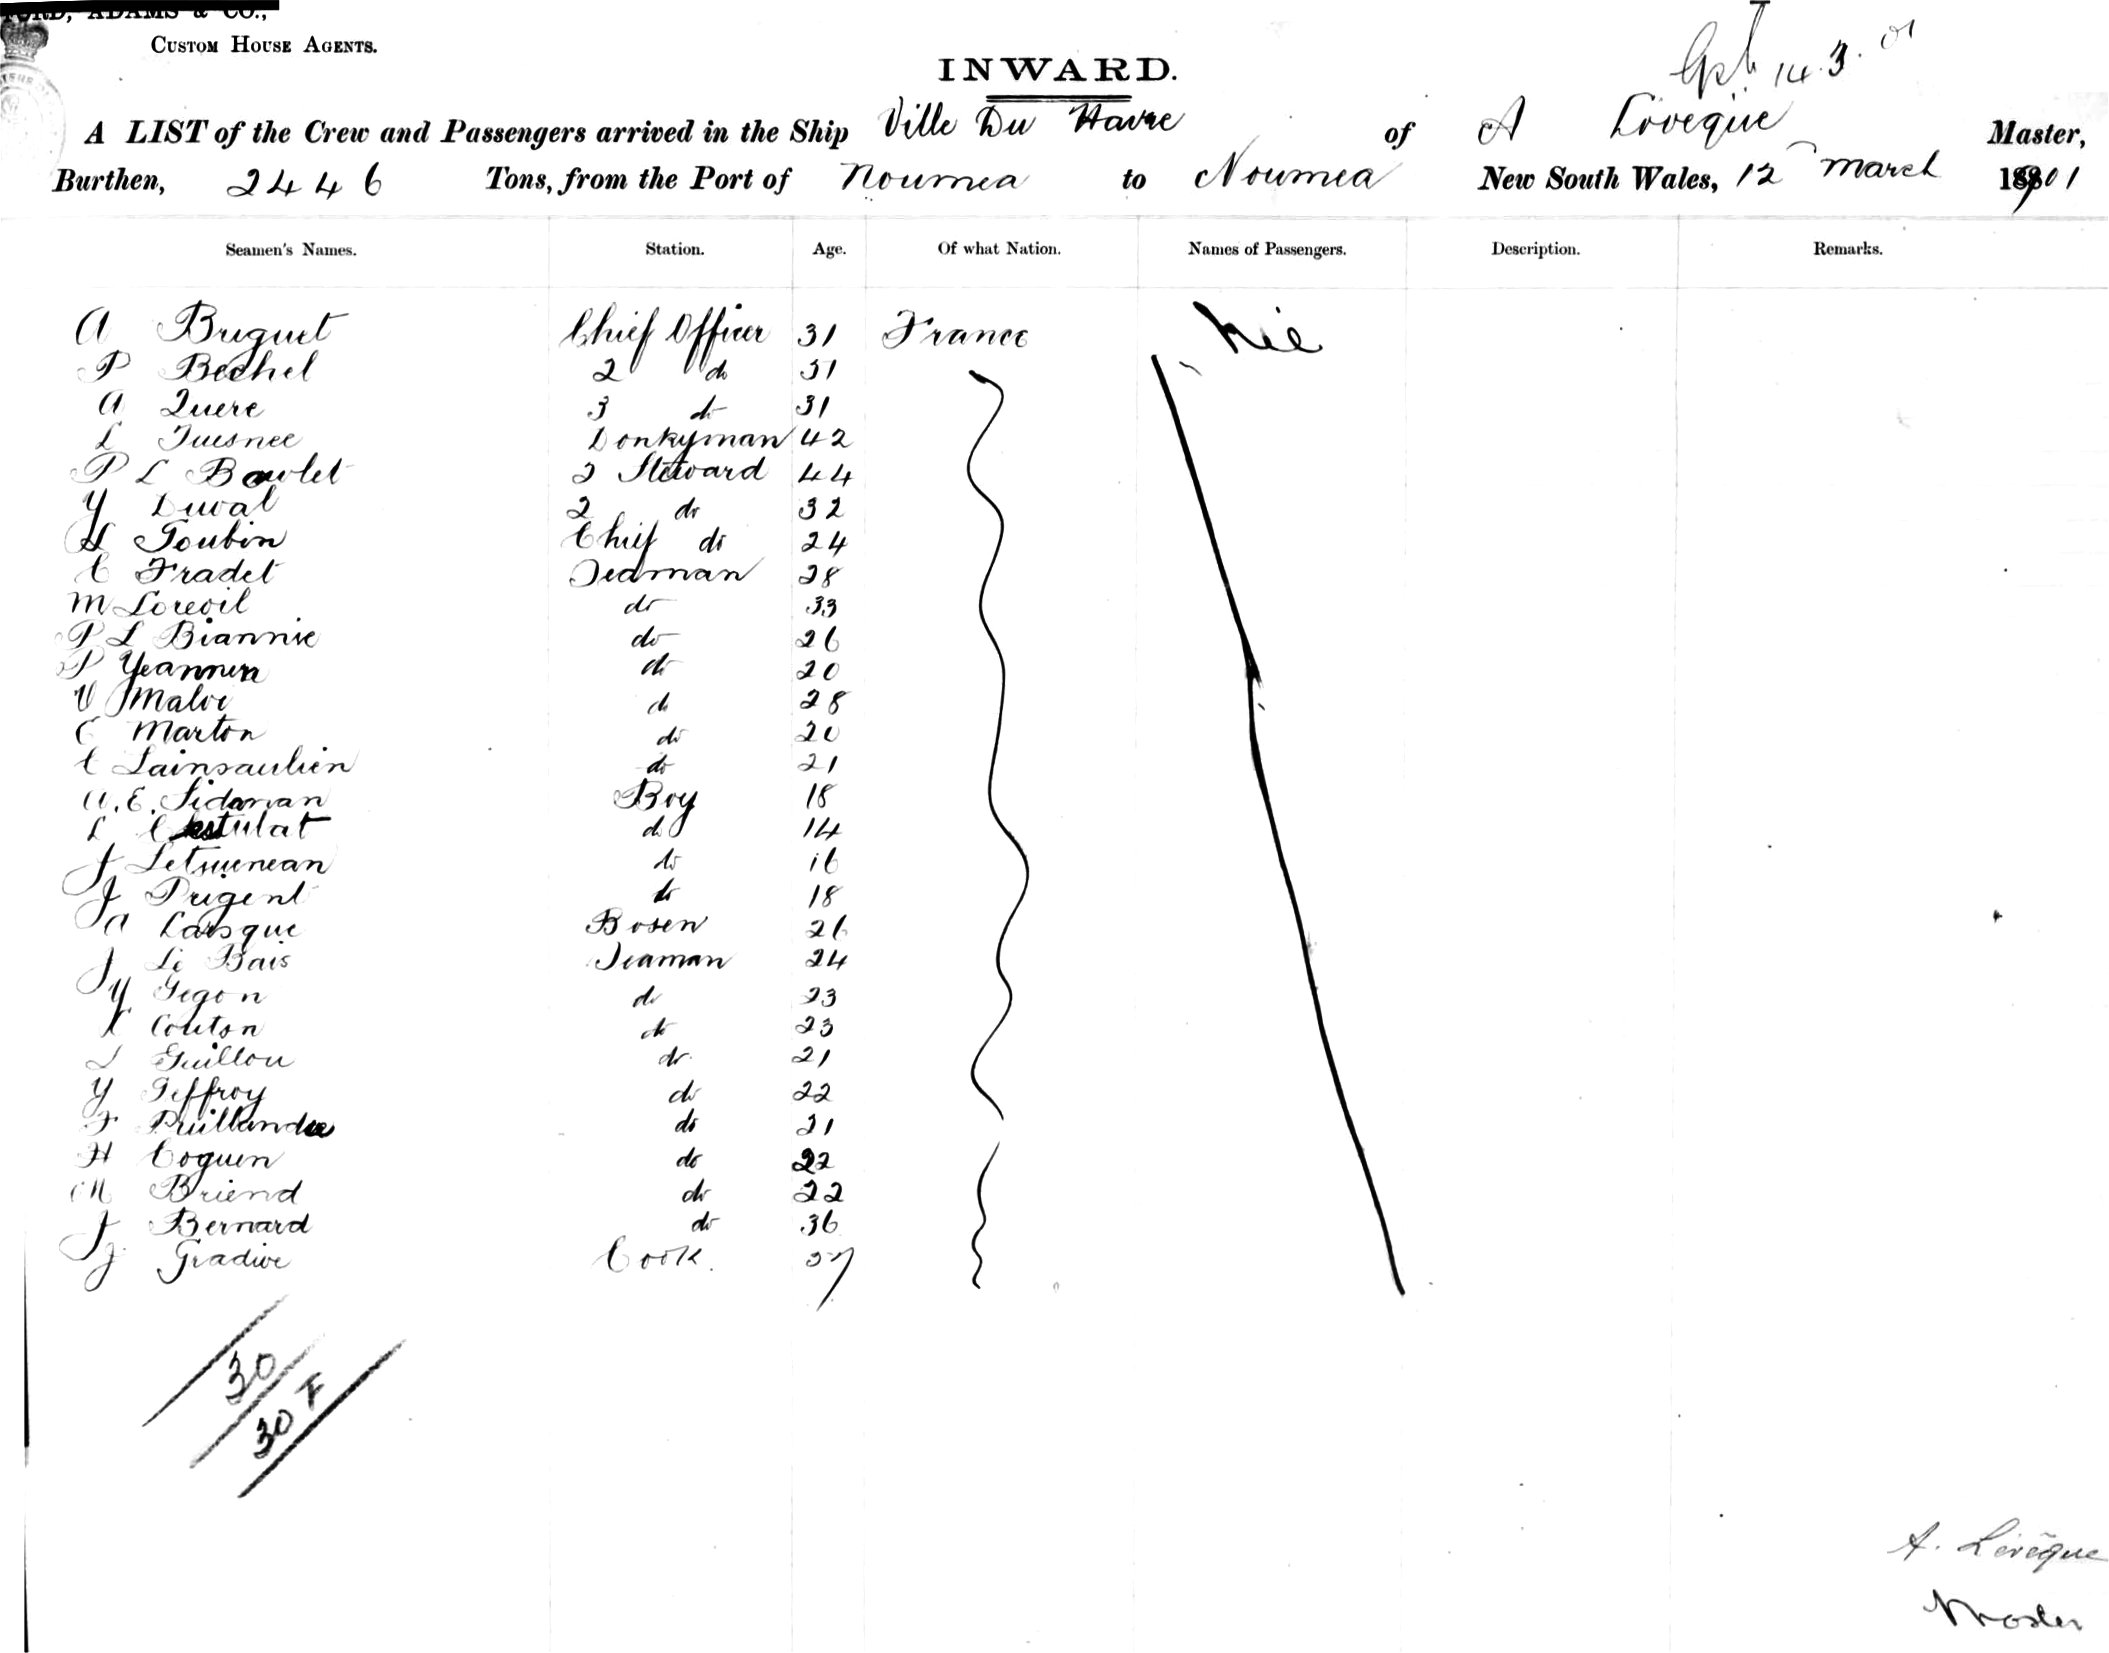 FORD, ADAMS & CO.,
CUSTOM HOUSE AGENTS.
INWARD.
14.3.01
A LIST of the Crew and Passengers arrived in the Ship Ville Du Havre of A Loveque Master,
Burthen, 2446 Tons, from the Port of Noumea to Noumea New South Wales, 12 March 1901
Seamen's Names. Station. Age. Of what Nation. Names of Passengers. Description. Remarks.
A Briguet Chief Officer 31 France Nil
P Bechel 2 do 31
A Quere 3 do 31
L Tuesnee Donkyman 42
P L Bowlet 2 Steward 44
Y Duval 2 do 32
L Toubin Chief do 24
C Fradet Seaman 28
M Loreoil do 33
P L Biannie do 26
P Yeannen do 20
V Maloe do 28
C Marton do 20
C Lainsaulien do 21
A. E. Sidaman Boy 18
L do 14
J Letuenean do 16
J Prigent do 18
A Lasque Bosen 26
J Le Bais Seaman 24
Y Gegon do 23
Couton do 23
L Guillou do 21
Y Geffroy do 22
F do 21
H Coquen do 22
M Briend do 22
J Bernard do 36
J. Gradive Cook. 37
30
30 F
A. Lévêque
Master